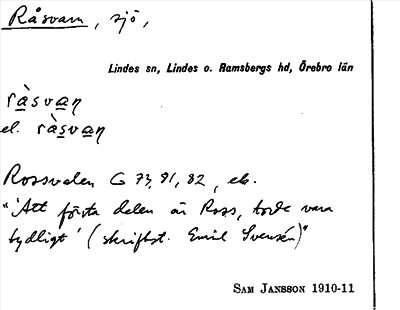 Råsvam, sjö,
Lindes sn, Lindes o. Ramsbergs hd, Örebro län
ràsvaṇ
el. ràsvaṇ
Rossvalen G 73, 81, 82, ek.
"'Att första delen är Ross, torde vara
tydligt' (skriftst. Emil Svensén)"
SAM JANSSON 1910-11